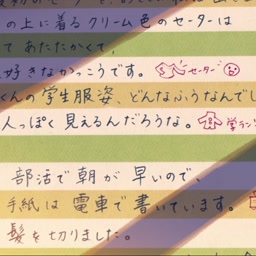 の上に着るクリーム色のセーターは
てあたたかくて,
好きなかっこうです。 セーター
くんの学生服姿、どんなふうなんでし
人っぽく見えるんだろうな。 学ラン
部活で朝が早いので、
手紙は電車で書いています。
髪を切りました。